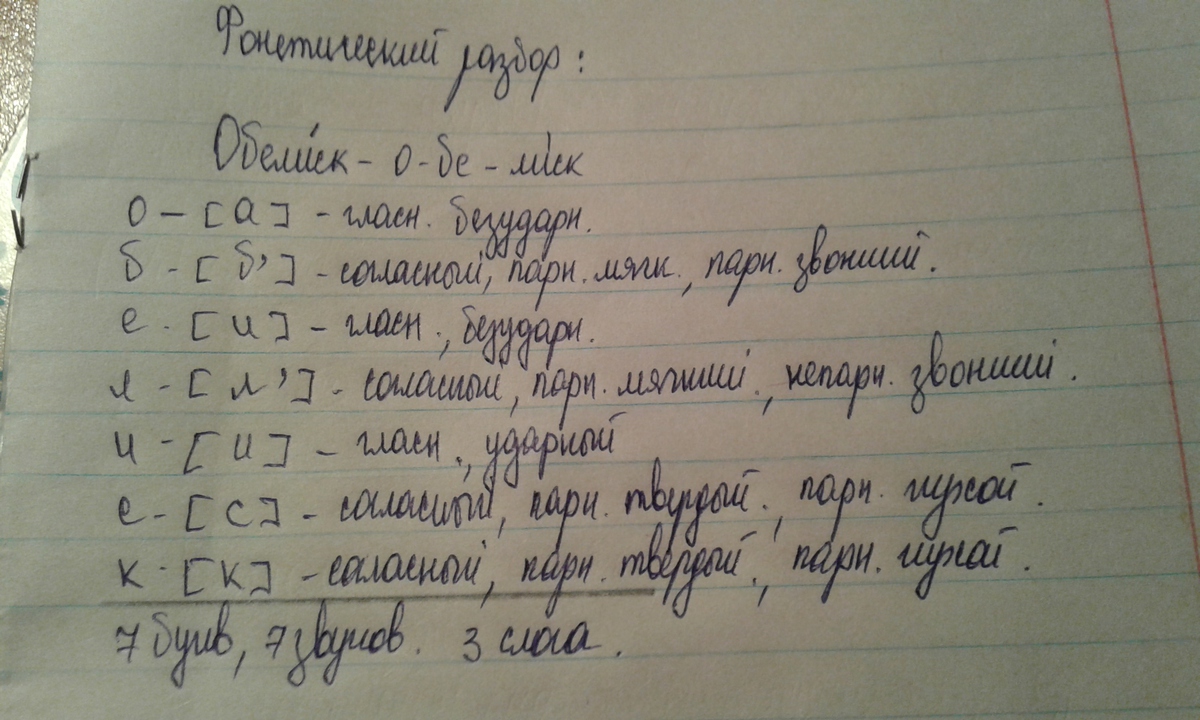 Фонетический разбор:
Обели́ск - о-бе-ли́ск
о - [а] - гласн. безударн.
б - [б'] - согласный, парн. мягк., парн. звонкий.
е - [и] - гласн., безударн.
л - [л'] - согласный, парн. мягкий., непарн. звонкий.
и - [и] - гласн., ударный
с - [с] - согласный, парн. твердый., парн. глухой.
к - [к] - согласный, парн. твердый., парн. глухой.
7 букв, 7 звуков. 3 слога.